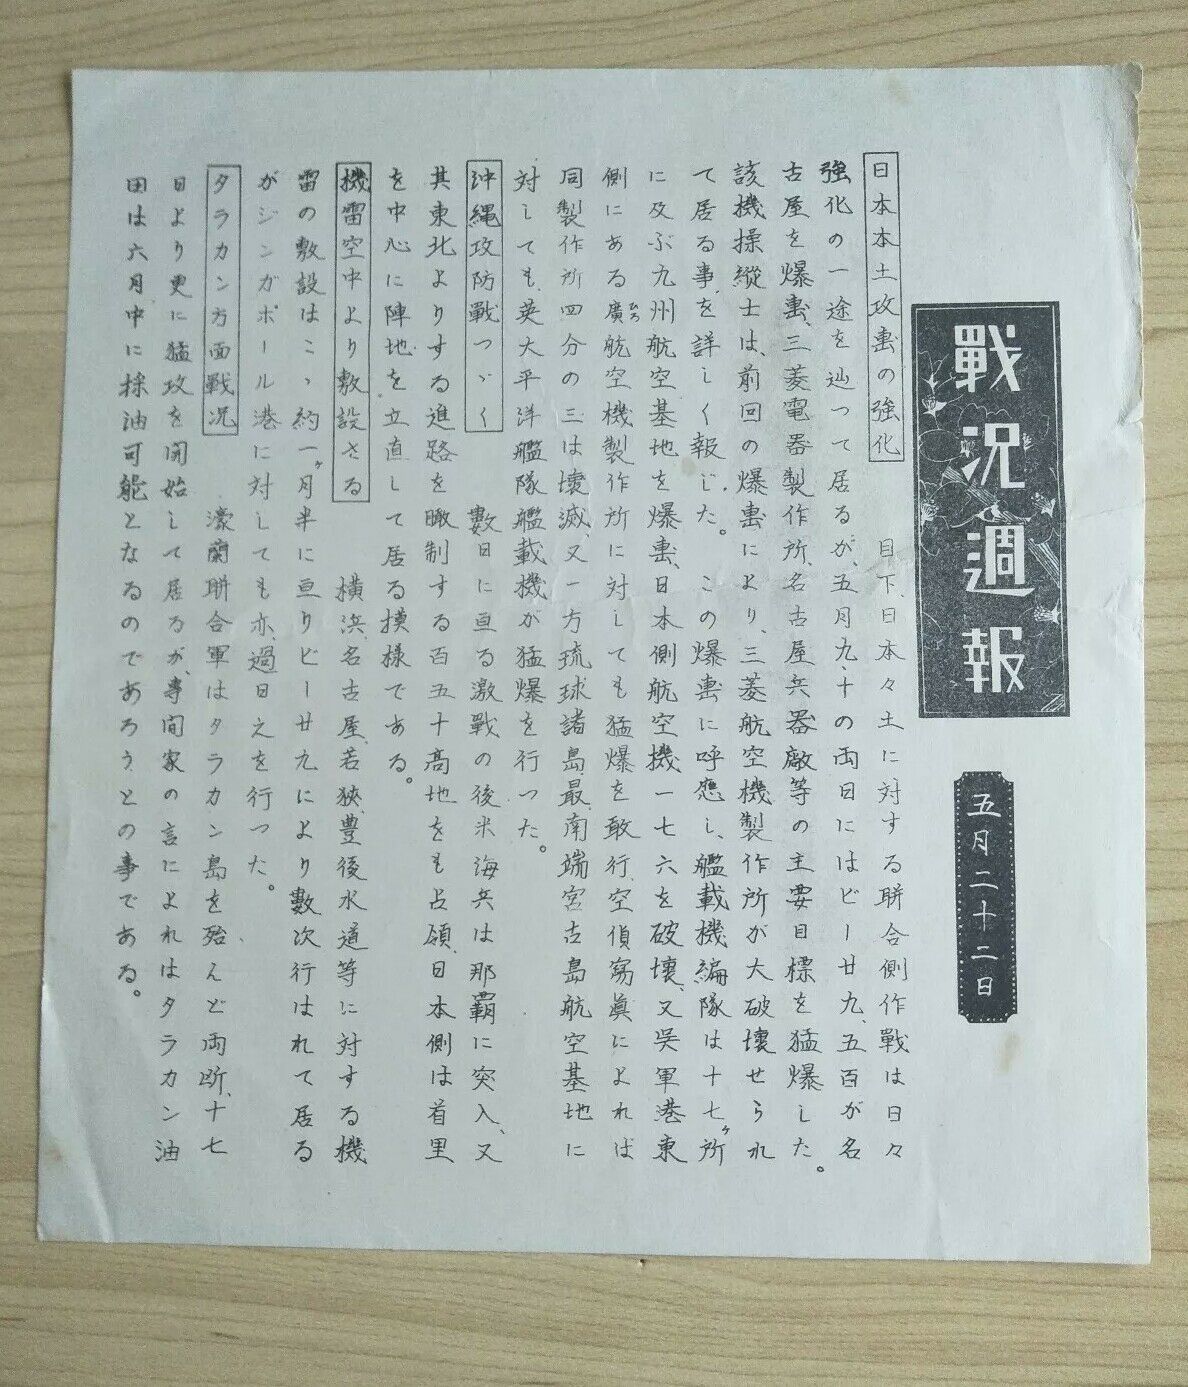 戰況週報
五月二十二日
日本本土攻撃の強化
目下、日本々土に対する聯合側作戰は日々
強化の一途を辿って居るが、五月九、十の両日にはビー廿九、五百が名
古屋を爆撃、三菱電器製作所、名古屋兵器廠等の主要目標を猛爆した。
該機操縦士は、前回の爆撃により、三菱航空機製作所が大破壊せられ
て居る事を詳しく報じた。この爆撃に呼應し、艦載機編隊は十七ヶ所
に及ぶ九州航空基地を爆撃、日本側航空機一七六を破壊、又呉軍港東
側にある廣航空機製作所に対しても猛爆を敢行、空偵寫眞によれば
ひろ
同製作所四分の三は壊滅、又一方琉球諸島最南端宮古島航空基地に
対しても、英太平洋艦隊艦載機が猛爆を行つた。
沖縄攻防戰つゞく
數日に亘る激戰の後米海兵は那覇に突入、又
其東北よりする進路を瞰制する百五十高地をも占領、日本側は首里
を中心に陣地を立直して居る摸様である。
機雷空中より敷設さる
横浜、名古屋、若狹、豊後水道等に対する機
雷の敷設はこゝ約一ヶ月半に亘りビー廿九により數次行はれて居る
がシンガポール港に対しても亦、過日之を行つた。
タラカン方面戰況
濠蘭聯合軍はタラカン島を殆んど両断、十七
日より更に猛攻を開始して居るが、専門家の言によればタラカン油
田は六月中に採油可能となるのであろうとの事である。